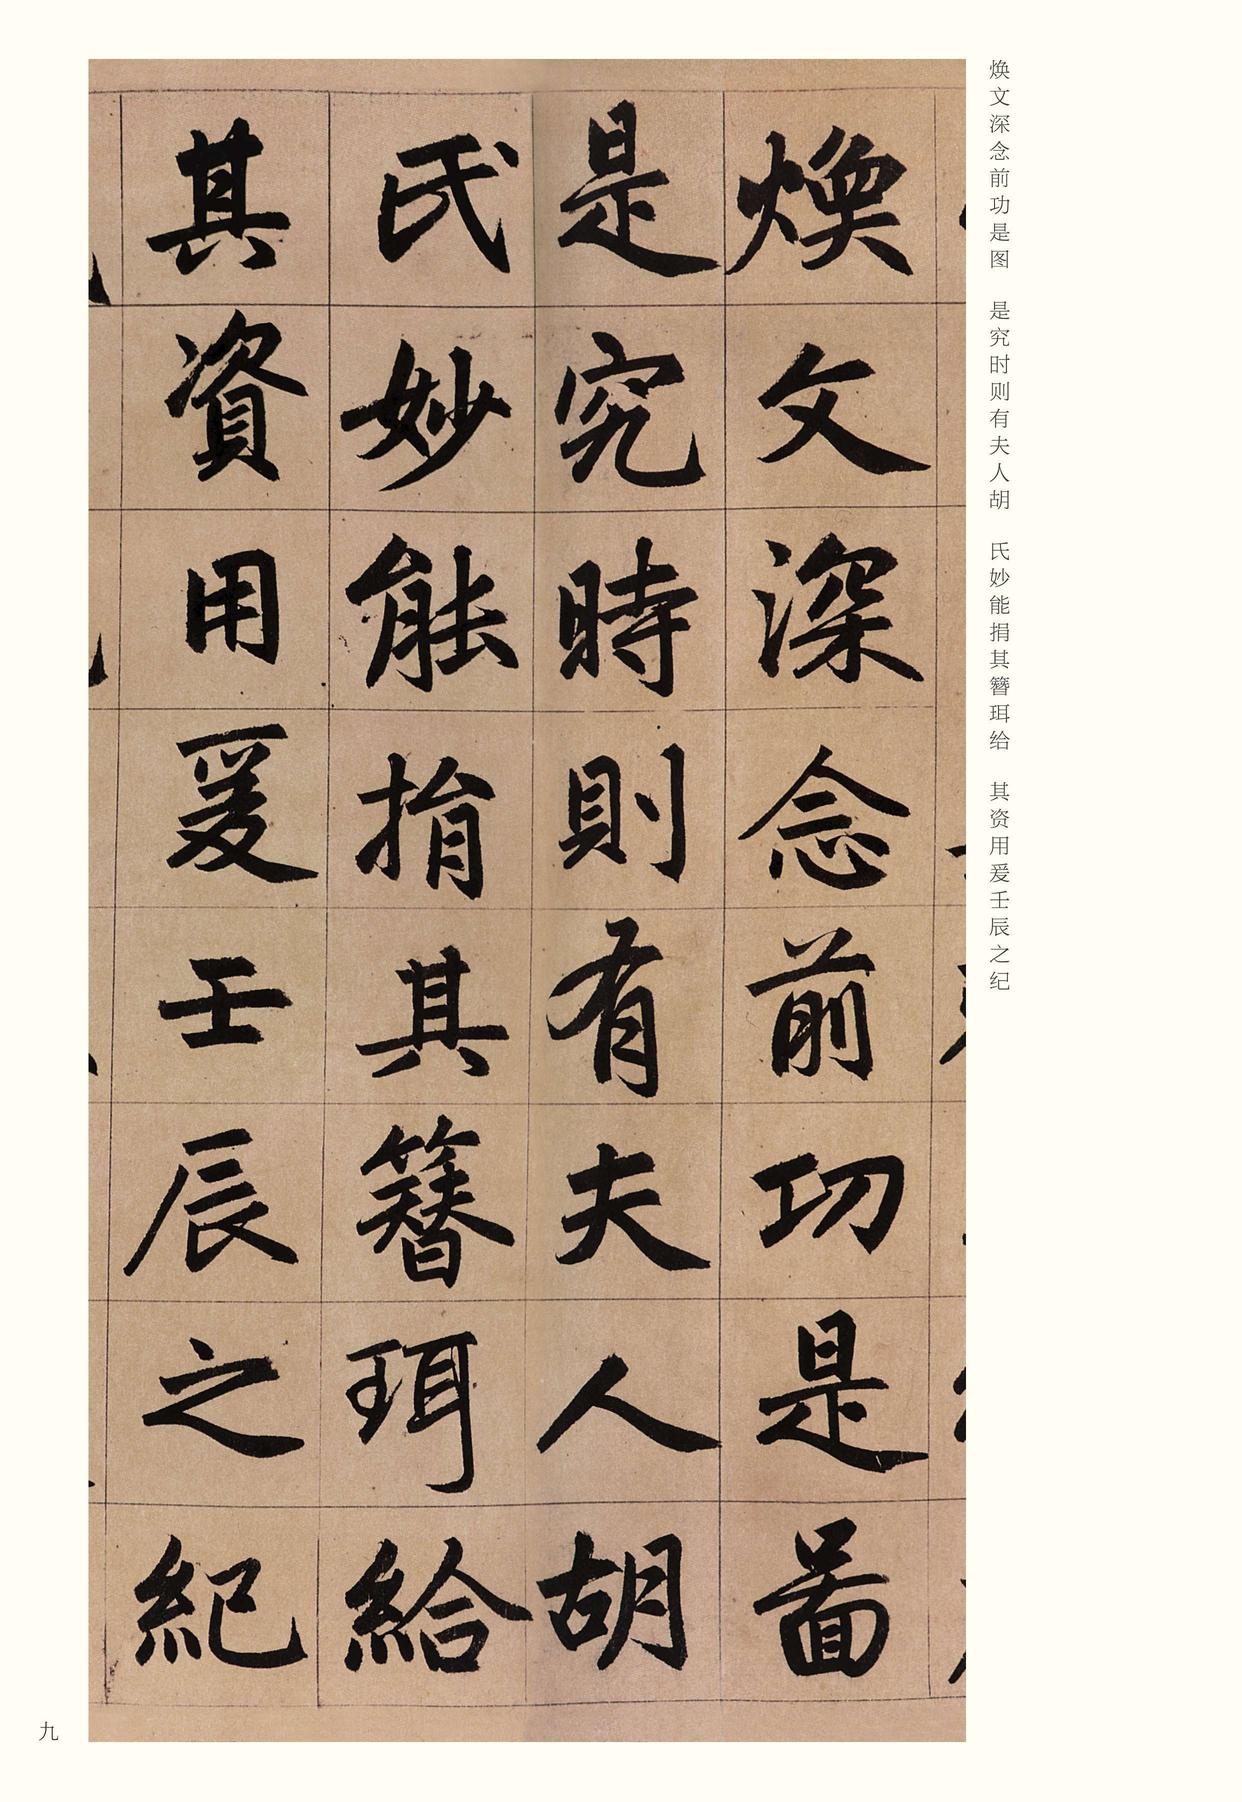 焕文深念前功是图 是究时则有夫人胡 氏妙能捐其簪珥给 其资用爰壬辰之纪
煥文深念前功是啚
是究時則有夫人胡
氏妙能捐其簪珥給
其資用爰壬辰之紀
九